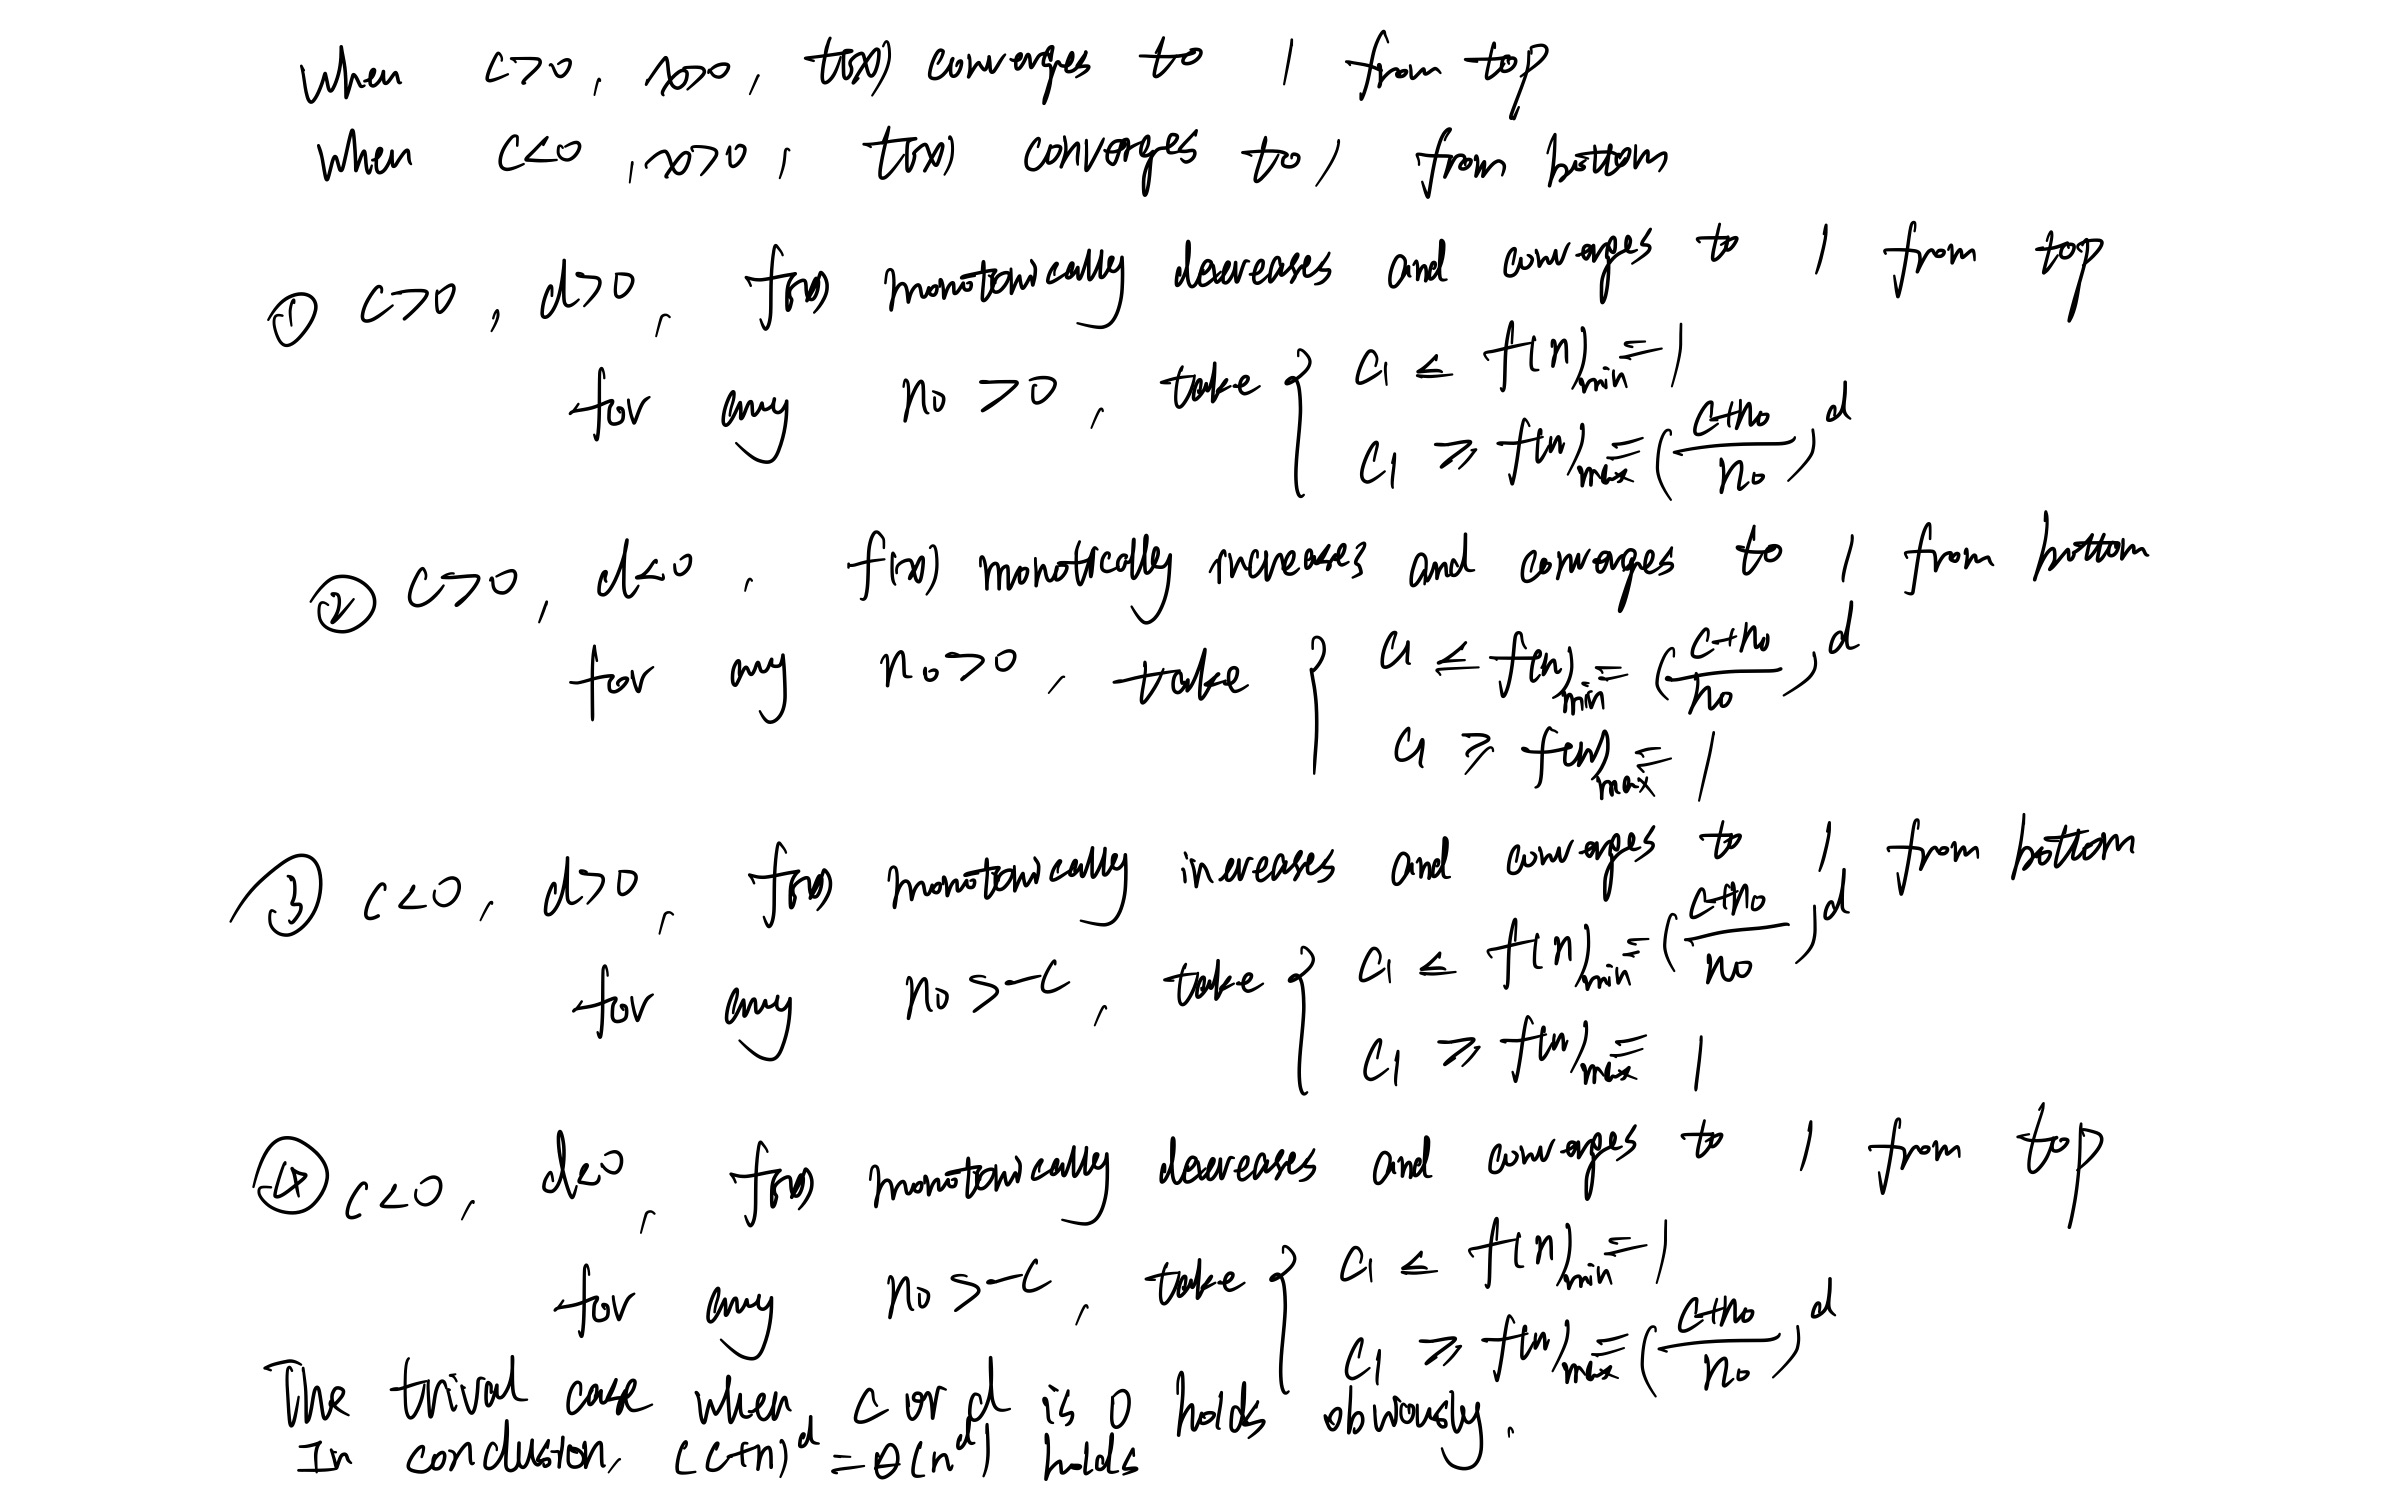 when c>0, x>0, t(x) converges to 1 from top
when c<0, x>0, t(x) converges to 1 from bottom
① c>0, d>0, f(x) monotonically decreases and converges to 1 from top
for any n₀>0, take { c₁ ≤ f(n)min = 1
c₁ ≥ f(n)max = (c+n₀/n₀)^d
② c>0, d<0, f(x) monotically increases and converges to 1 from bottom
for any n₀>0, take { c₁ ≤ f(n)min = (c+n₀/n₀)^d
c₁ ≥ f(n)max = 1
③ c<0, d>0, f(x) monotonically increases and converges to 1 from bottom
for any n₀>-c, take { c₁ ≤ f(n)min = (c+n₀/n₀)^d
c₁ ≥ f(n)max = 1
④ c<0, d<0, f(x) monotonically decreases and converges to 1 from top
for any n₀>-c, take { c₁ ≤ f(n)min = 1
c₁ ≥ f(n)max = (c+n₀/n₀)^d
The trivial case when c or d is 0 holds obviously.
In conclusion, (c+n)^d = θ(n^d) holds